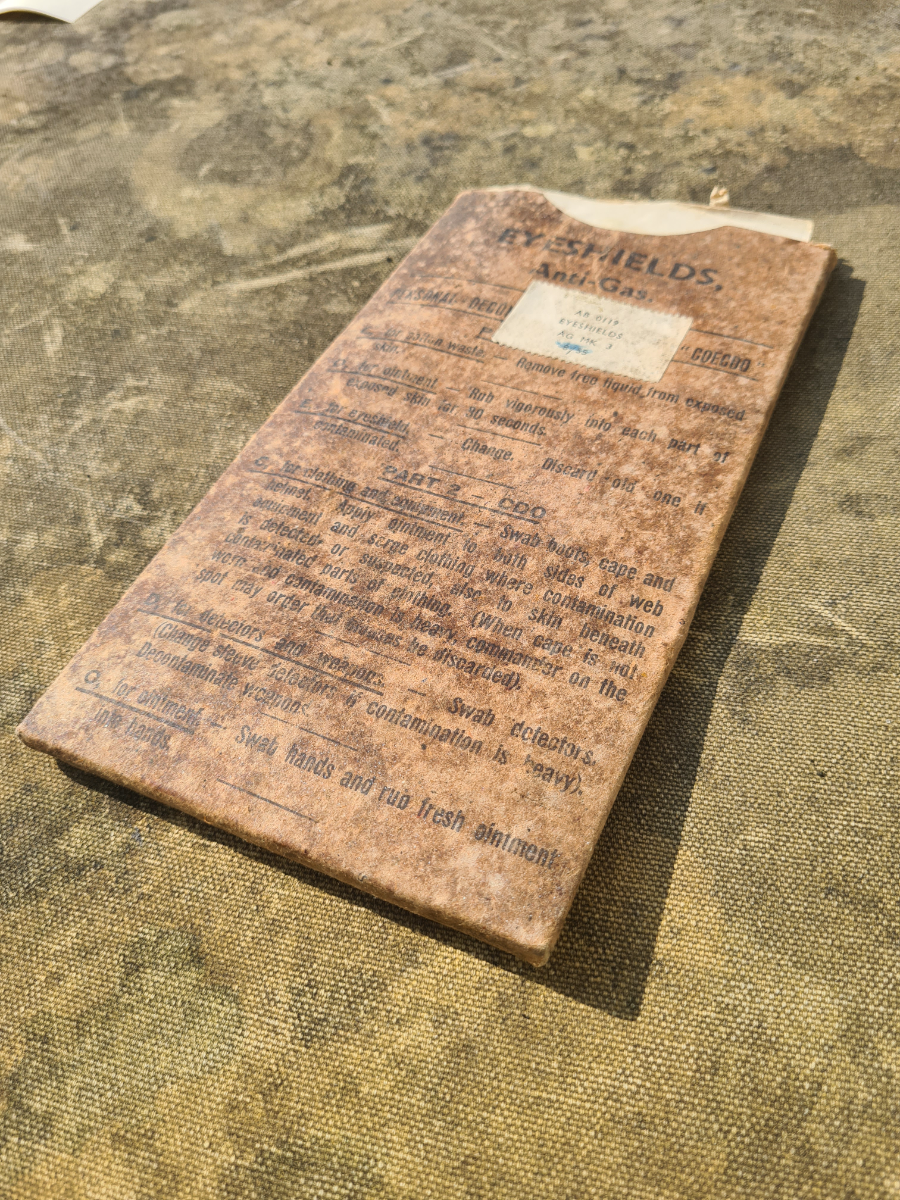 EYESHIELDS,
Anti-Gas.
PERSONAL DECON "COEGDO"
AB 0119
EYESHIELDS
AG MK 3
for cotton waste. — Remove free liquid from exposed
skin.
for ointment. — Rub vigorously into each part of
exposed skin for 30 seconds.
E. for eyeshield. — Change. Discard old one if
contaminated.
PART 2 — CDO
C. for clothing and equipment. — Swab boots, cape and
helmet. Apply ointment to both sides of web
equipment and serge clothing where contamination
is detected or suspected, also to skin beneath
contaminated parts of clothing. (When cape is not
worn and contamination is heavy commander on the
spot may order that be discarded).
D. for detectors and weapons. — Swab detectors.
(Change sleeve detectors if contamination is heavy).
Decontaminate weapons.
O. for ointment. — Swab hands and rub fresh ointment
into hands.